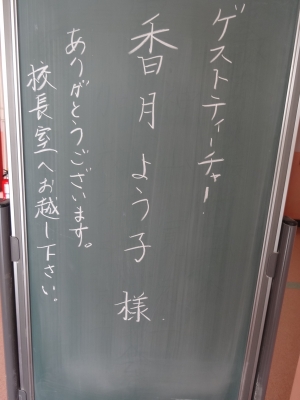 ゲストティーチャー
香月よう子様
ありがとうございます。
校長室へお越し下さい。